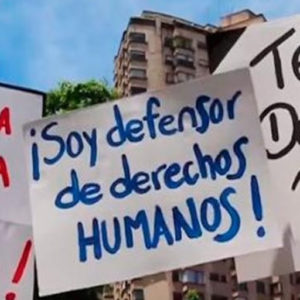 ¡Soy defensor
de derechos
HUMANOS!